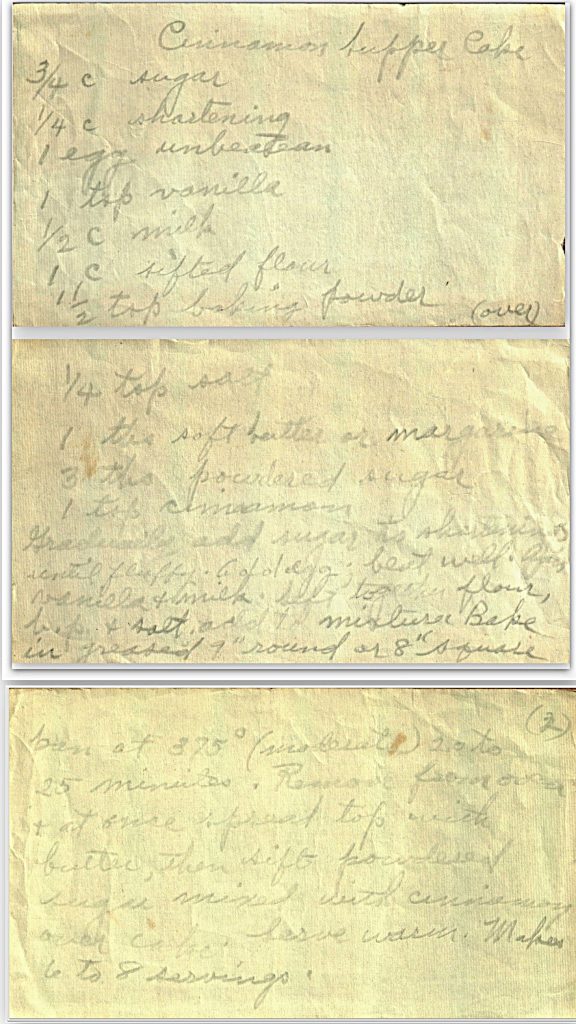 Cinnamon Supper Cake
3/4 c sugar
1/4 c shortening
1 egg unbeatean
1 tsp vanilla
1/2 c milk
1 c sifted flour
1 1/2 tsp baking powder (over)
1/4 tsp salt
1 tbs soft butter or margarine
3 tbs powdered sugar
1 tsp cinnamon
Gradually add sugar to shortening
until fluffy. Add egg; beat well
vanilla & milk. sift together flour,
b.p. & salt. add to mixture Bake
in greased 9" round or 8" square
(2)
pan at 375° (moderate) 20 to
25 minutes. Remove from oven
& at once spread top with
butter, then sift powdered
sugar mixed with cinnamon
over cake. Serve warm. Makes
6 to 8 servings.